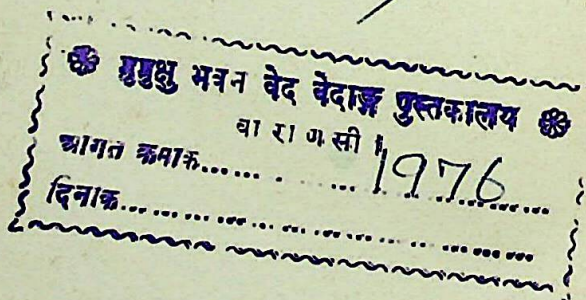 ❀ मुमुक्षु भवन वेद वेदाङ्ग पुस्तकालय ❀
वाराणसी।
आगत क्रमाक...... 1976
दिनाक......